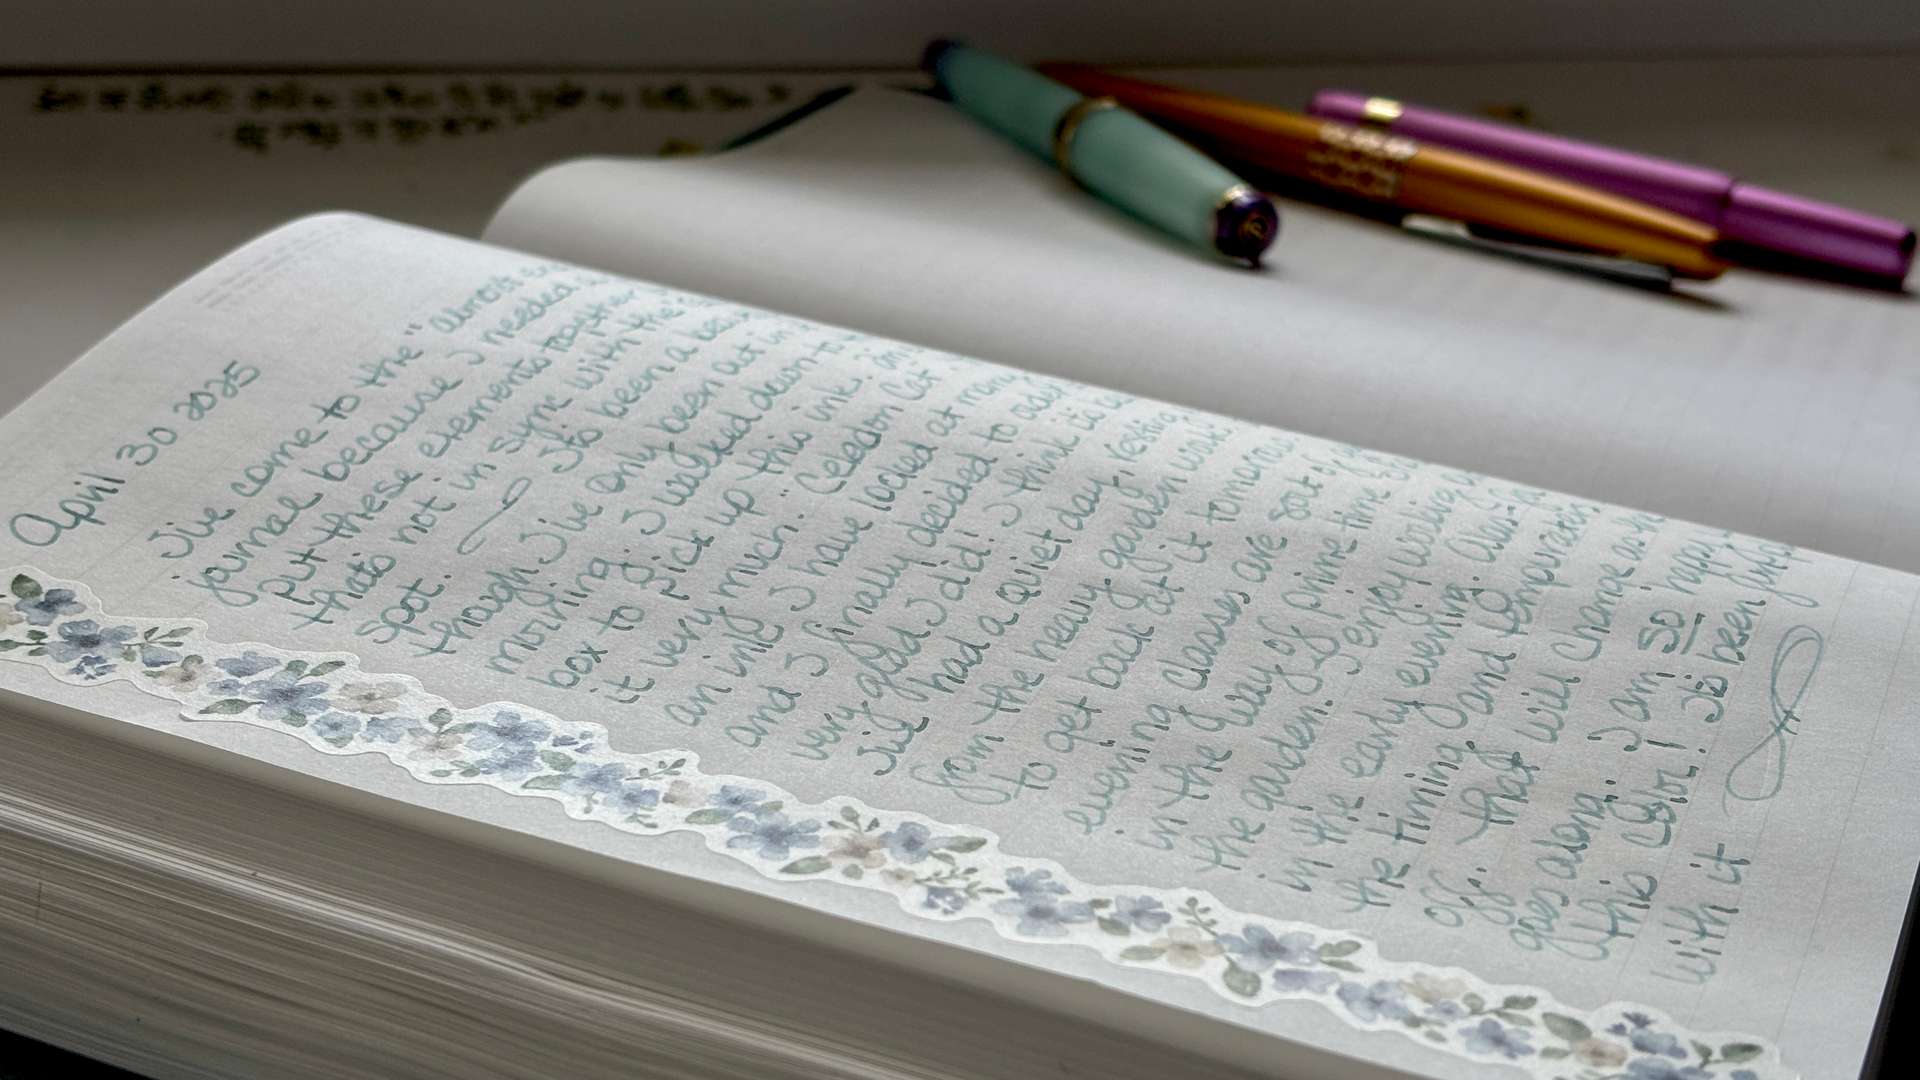 April 30 2025
I've come to the "almost end
journal because I needed
put these elements together
photo not in sync with the
spot. Its been a
though I've only been out in
morning. I walked down to the
box to pick up this ink.
it very much. "Celedon Cat
an ink I have looked at many
and I finally decided to
very glad I did! I think
I had a quiet day, resting
from the heavy garden work.
to get back at it tomorrow.
evening classes are sort of
in the way of prime time
the garden. I enjoy working
in the early evening. Also
the timing and temperatures
off. That will change as the
goes along. I am so happy
this color! Its been
with it